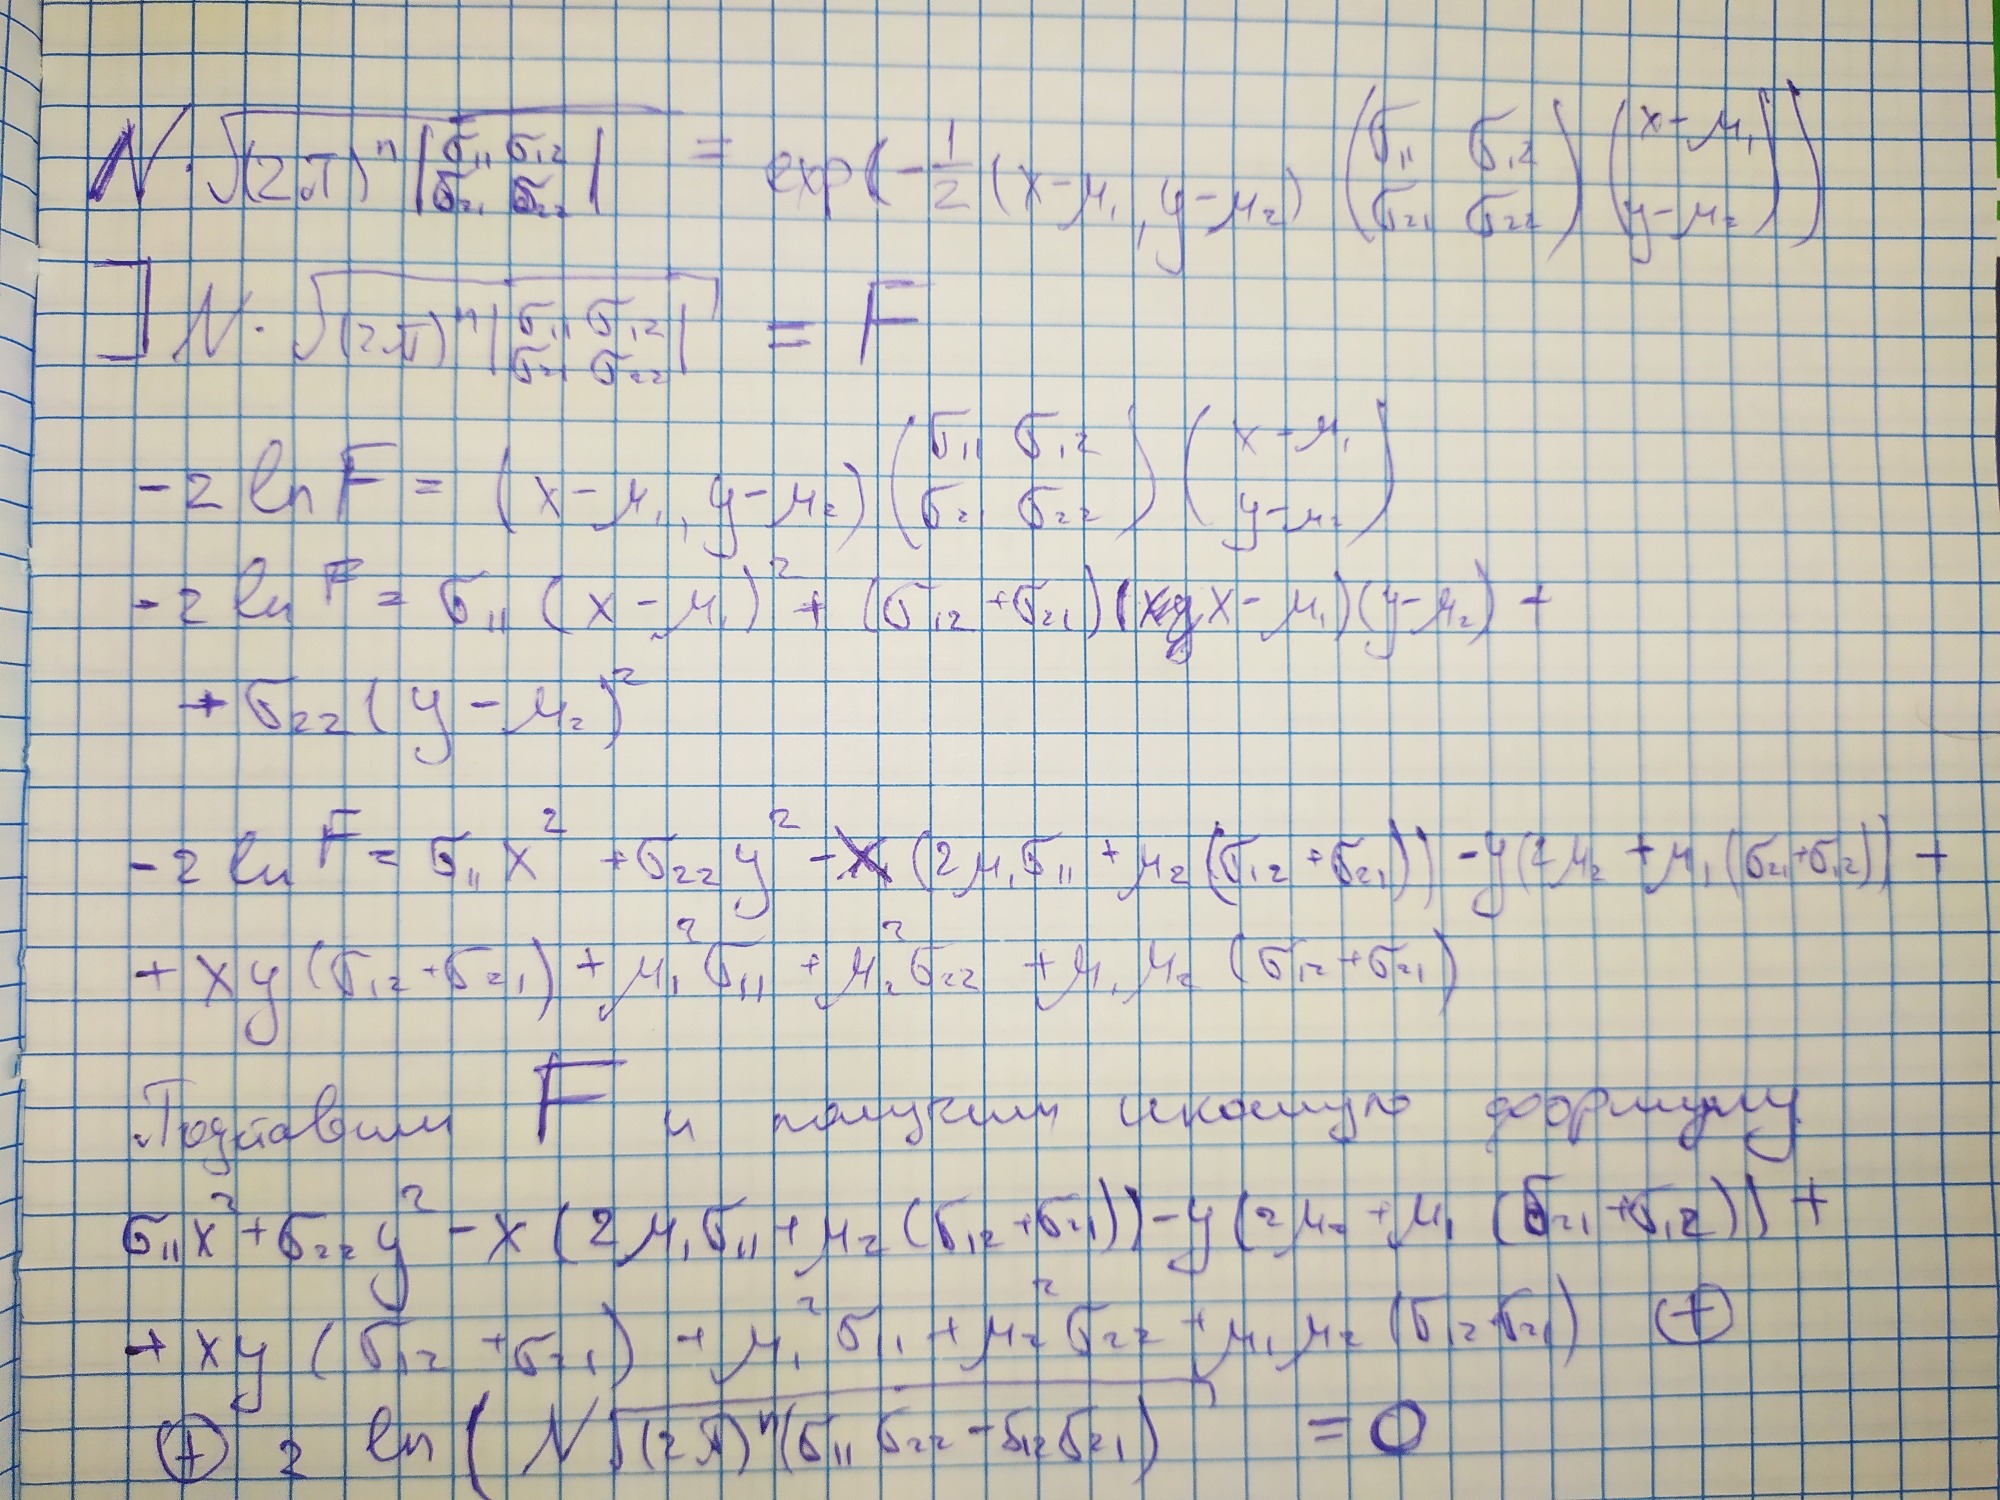 N · √((2π)ⁿ |σ₁₁ σ₁₂ σ₂₁ σ₂₂|) = exp(-1/2 (x-μ₁, y-μ₂) (σ₁₁ σ₁₂ σ₂₁ σ₂₂) (x-μ₁ y-μ₂))
] N · √((2π)ⁿ |σ₁₁ σ₁₂ σ₂₁ σ₂₂|) = F
-2 ln F = (x-μ₁, y-μ₂) (σ₁₁ σ₁₂ σ₂₁ σ₂₂) (x-μ₁ y-μ₂)
-2 ln F = σ₁₁ (x-μ₁)² + (σ₁₂+σ₂₁)(x-μ₁)(y-μ₂) +
+ σ₂₂(y-μ₂)²
-2 ln F = σ₁₁x² + σ₂₂y² - x(2μ₁σ₁₁ + μ₂(σ₁₂+σ₂₁)) - y(2μ₂ + μ₁(σ₂₁+σ₁₂)) +
+ xy(σ₁₂+σ₂₁) + μ₁²σ₁₁ + μ₂²σ₂₂ + μ₁μ₂(σ₁₂+σ₂₁)
Подставим F и получим искомую формулу
σ₁₁x² + σ₂₂y² - x(2μ₁σ₁₁ + μ₂(σ₁₂+σ₂₁)) - y(2μ₂ + μ₁(σ₂₁+σ₁₂)) +
+ xy(σ₁₂+σ₂₁) + μ₁²σ₁₁ + μ₂²σ₂₂ + μ₁μ₂(σ₁₂+σ₂₁) ⊕
⊕ 2 ln(N√((2π)ⁿ(σ₁₁σ₂₂-σ₁₂σ₂₁) = 0